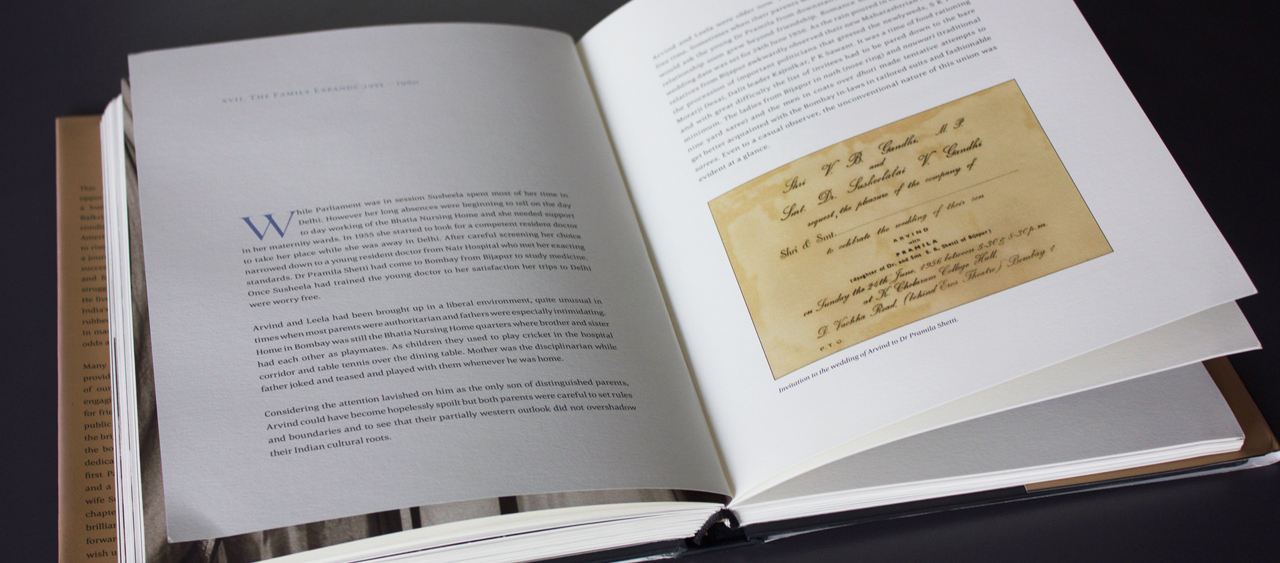 XVII. The Family Expands 1951 - 1960
While Parliament was in session Susheela spent most of her time in
Delhi. However her long absences were beginning to tell on the day
to day working of the Bhatia Nursing Home and she needed support
in her maternity wards. In 1955 she started to look for a competent resident doctor
to take her place while she was away in Delhi. After careful screening her choice
narrowed down to a young resident doctor from Nair Hospital who met her exacting
standards. Dr Pramila Shetti had come to Bombay from Bijapur to study medicine.
Once Susheela had trained the young doctor to her satisfaction her trips to Delhi
were worry free.
Arvind and Leela had been brought up in a liberal environment, quite unusual in
times when most parents were authoritarian and fathers were especially intimidating.
Home in Bombay was still the Bhatia Nursing Home quarters where brother and sister
had each other as playmates. As children they used to play cricket in the hospital
corridor and table tennis over the dining table. Mother was the disciplinarian while
father joked and teased and played with them whenever he was home.
Considering the attention lavished on him as the only son of distinguished parents,
Arvind could have become hopelessly spoilt but both parents were careful to set rules
and boundaries and to see that their partially western outlook did not overshadow
their Indian cultural roots.
Arvind and Leela were older now.
would ask the young Dr Pramila from downstairs
relationship soon grew beyond friendship.
wedding date was set for 24th June 1956. As the rain poured
relatives from Bijapur awkwardly observed their new Maharashtrian
the procession of important politicians that greeted the newlyweds, S K
Morarji Desai, Dalit leader Kajrolkar, P K Sawant. It was a time of food rationing
and with great difficulty the list of invitees had to be pared down to the bare
minimum. The ladies from Bijapur in nath (nose ring) and nauwari (traditional
nine yard saree) and the men in coats over dhoti made tentative attempts to
get better acquainted with the Bombay in-laws in tailored suits and fashionable
sarees. Even to a casual observer, the unconventional nature of this union was
evident at a glance.
Shri V. B. Gandhi, M. P.
and
Smt. Dr. Susheelabai V. Gandhi
request the pleasure of the company of
Shri & Smt.
to celebrate the wedding of their son
ARVIND
with
PRAMILA
(daughter of Dr. and Smt. S. R. Shetti of Bijapur)
on Sunday the 24th June, 1956 between 5-30 & 8-30 p.m.
at K. Chelaram College Hall,
D. Vachha Road, (behind Eros Theatre) Bombay 1
P. T. O.
Invitation to the wedding of Arvind to Dr Pramila Shetti.